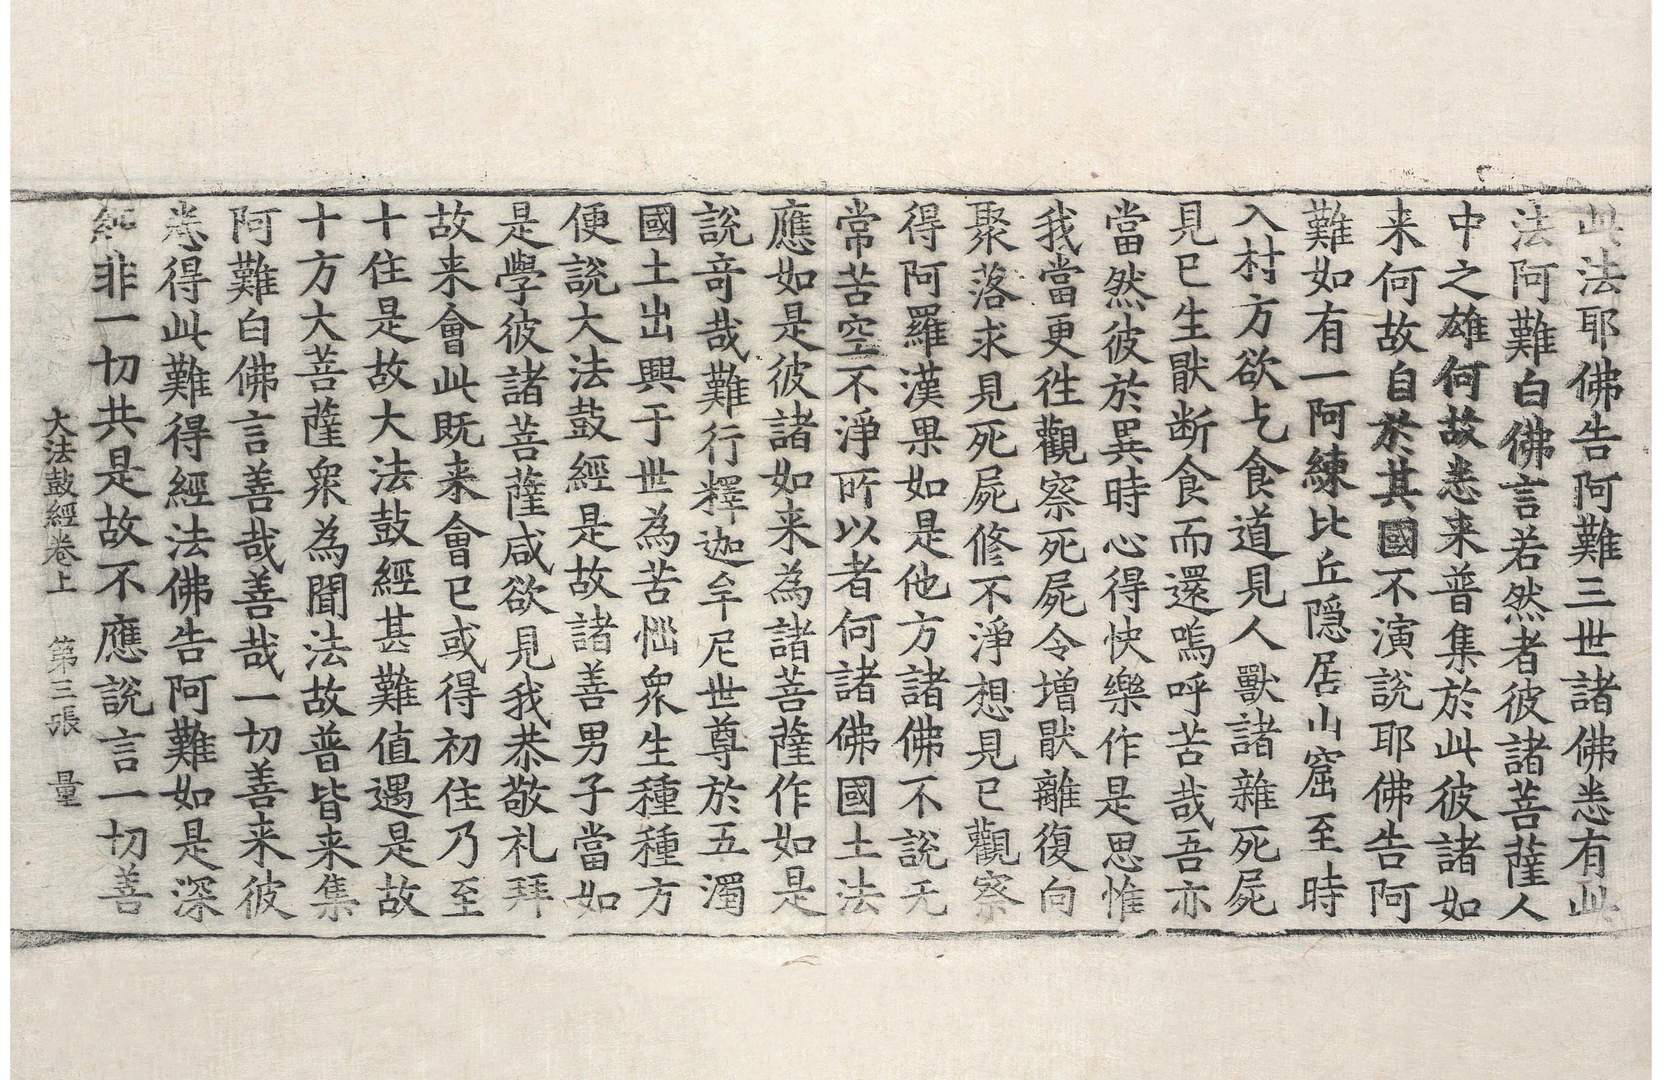 此法耶佛告阿難三世諸佛悉有此
法阿難白佛言若然者彼諸菩薩人
中之雄何故悉来普集於此彼諸如
来何故自於其國不演說耶佛告阿
難如有一阿練比丘隱居山窟至時
入村方欲乞食道見人獸諸雜死屍
見已生猒断食而還嗚呼苦哉吾亦
當然彼於異時心得快樂作是思惟
我當更徃觀察死屍令増猒離復向
聚落求見死屍修不淨想見已觀察
得阿羅漢果如是他方諸佛不說无
常苦空不淨所以者何諸佛國土法
應如是彼諸如来為諸菩薩作如是
說奇哉難行釋迦牟尼世尊於五濁
國土出興于世為苦惱衆生種種方
便說大法鼓經是故諸善男子當如
是學彼諸菩薩咸欲見我恭敬礼拜
故来會此既来會已或得初住乃至
十住是故大法鼓經甚難值遇是故
十方大菩薩衆為聞法故普皆来集
阿難白佛言善哉善哉一切善来彼
悉得此難得經法佛告阿難如是深
經非一切共是故不應說言一切善
大法鼓經卷上 第三張 量